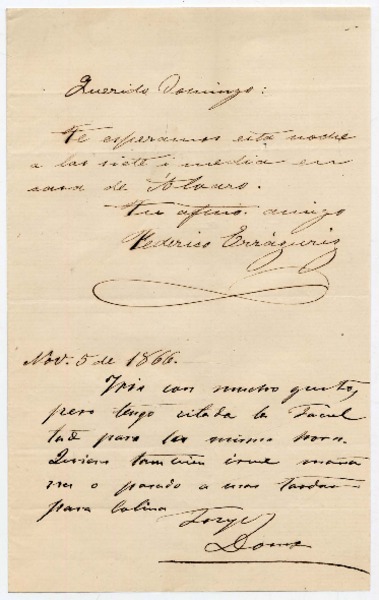 Querido Domingo:
Te esperamos esta noche
a las siete i media en
casa de Alvaro.
Tu afmo. amigo
Federico Errázuriz
Nov. 5 de 1866.
Iria con mucho gusto,
pero tengo citada la Facul
tad para la misma hora.
Quisiera tambien irme maña
na o pasado a mas tardar
para Colina
Tuyo
Dom